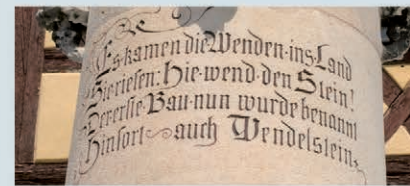 Es·kamen·die·Wenden·ins·Land
Sie·riefen:·Hie·wend·den·Stein!
Der·erste·Bau·nun·wurde·benannt
Hinfort·auch·Wendelstein.